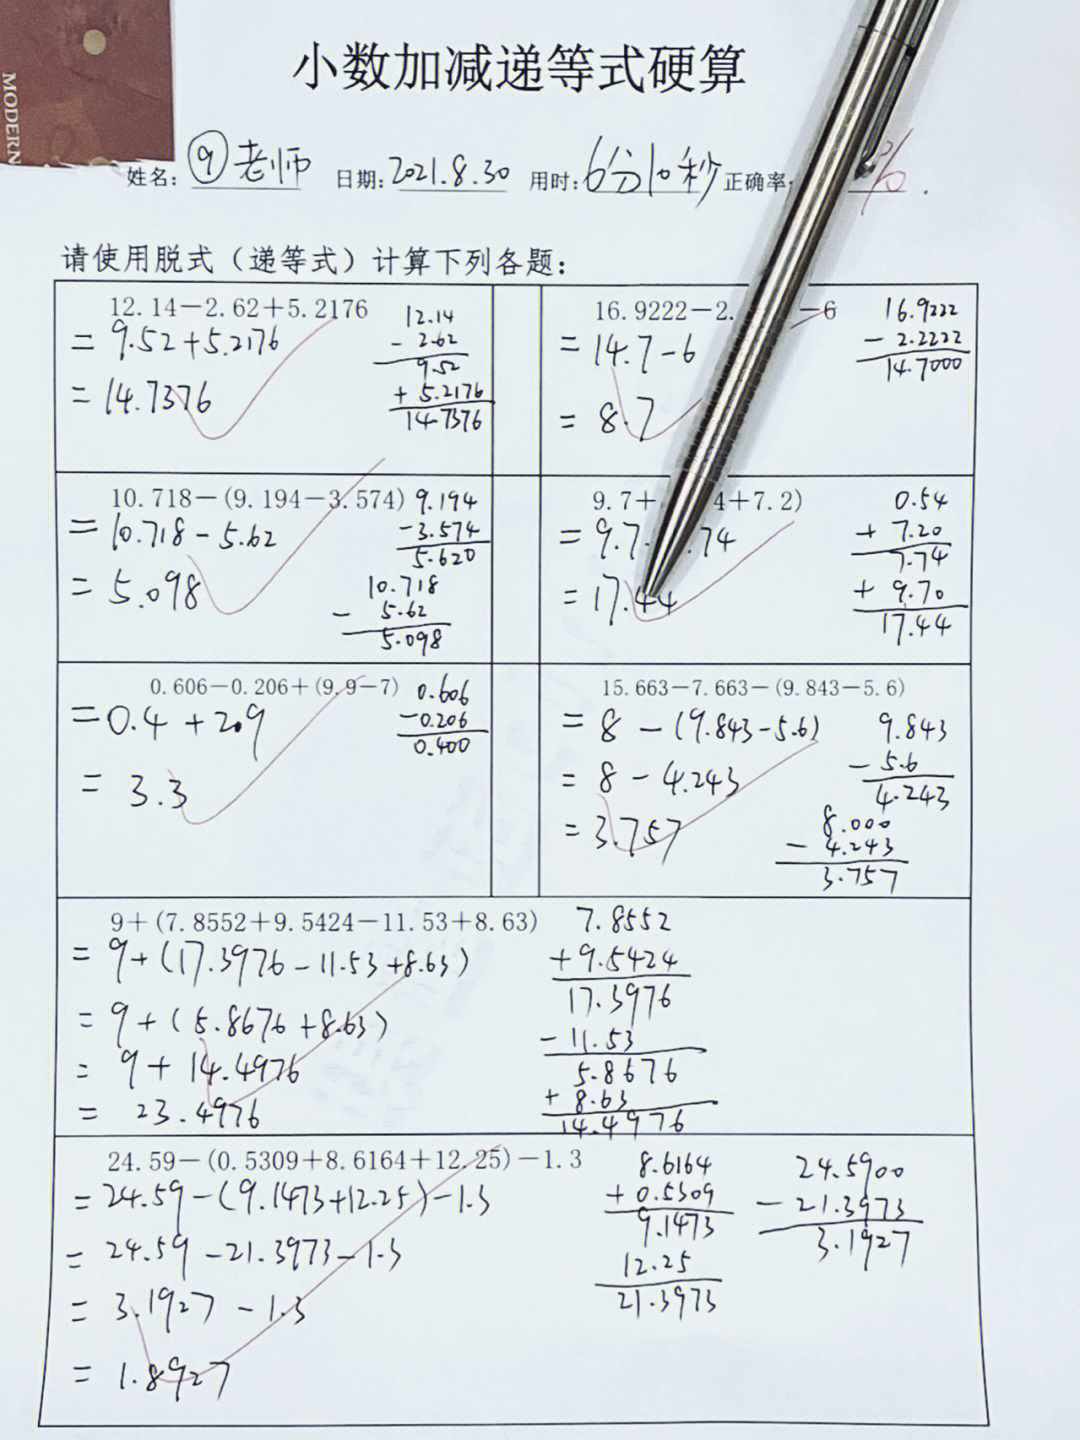 MODERN
小数加减递等式硬算
姓名: ⑨老师 日期: 2021.8.30 用时: 6分10秒 正确率:
请使用脱式（递等式）计算下列各题：
12.14−2.62+5.2176
= 9.52+5.2176
= 14.7376
12.14
− 2.62
9.52
+ 5.2176
14.7376
16.9222−2. −6
= 14.7−6
= 8.7
16.9222
− 2.2222
14.7000
10.718−(9.194−3.574)
= 10.718−5.62
= 5.098
9.194
−3.574
5.620
10.718
− 5.62
5.098
9.7+ 4+7.2)
= 9.7 .74
= 17.44
0.54
+ 7.20
7.74
+ 9.70
17.44
0.606−0.206+(9.9−7)
=0.4+2.9
= 3.3
0.606
−0.206
0.400
15.663−7.663−(9.843−5.6)
= 8−(9.843−5.6)
= 8−4.243
= 3.757
9.843
− 5.6
4.243
8.000
− 4.243
3.757
9+(7.8552+9.5424−11.53+8.63)
= 9+(17.3976−11.53+8.63)
= 9+(5.8676+8.63)
= 9+14.4976
= 23.4976
7.8552
+9.5424
17.3976
−11.53
5.8676
+ 8.63
14.4976
24.59−(0.5309+8.6164+12.25)−1.3
= 24.59−(9.1473+12.25)−1.3
= 24.59−21.3973−1.3
= 3.1927−1.3
= 1.8927
8.6164
+0.5309
9.1473
12.25
21.3973
24.5900
−21.3973
3.1927